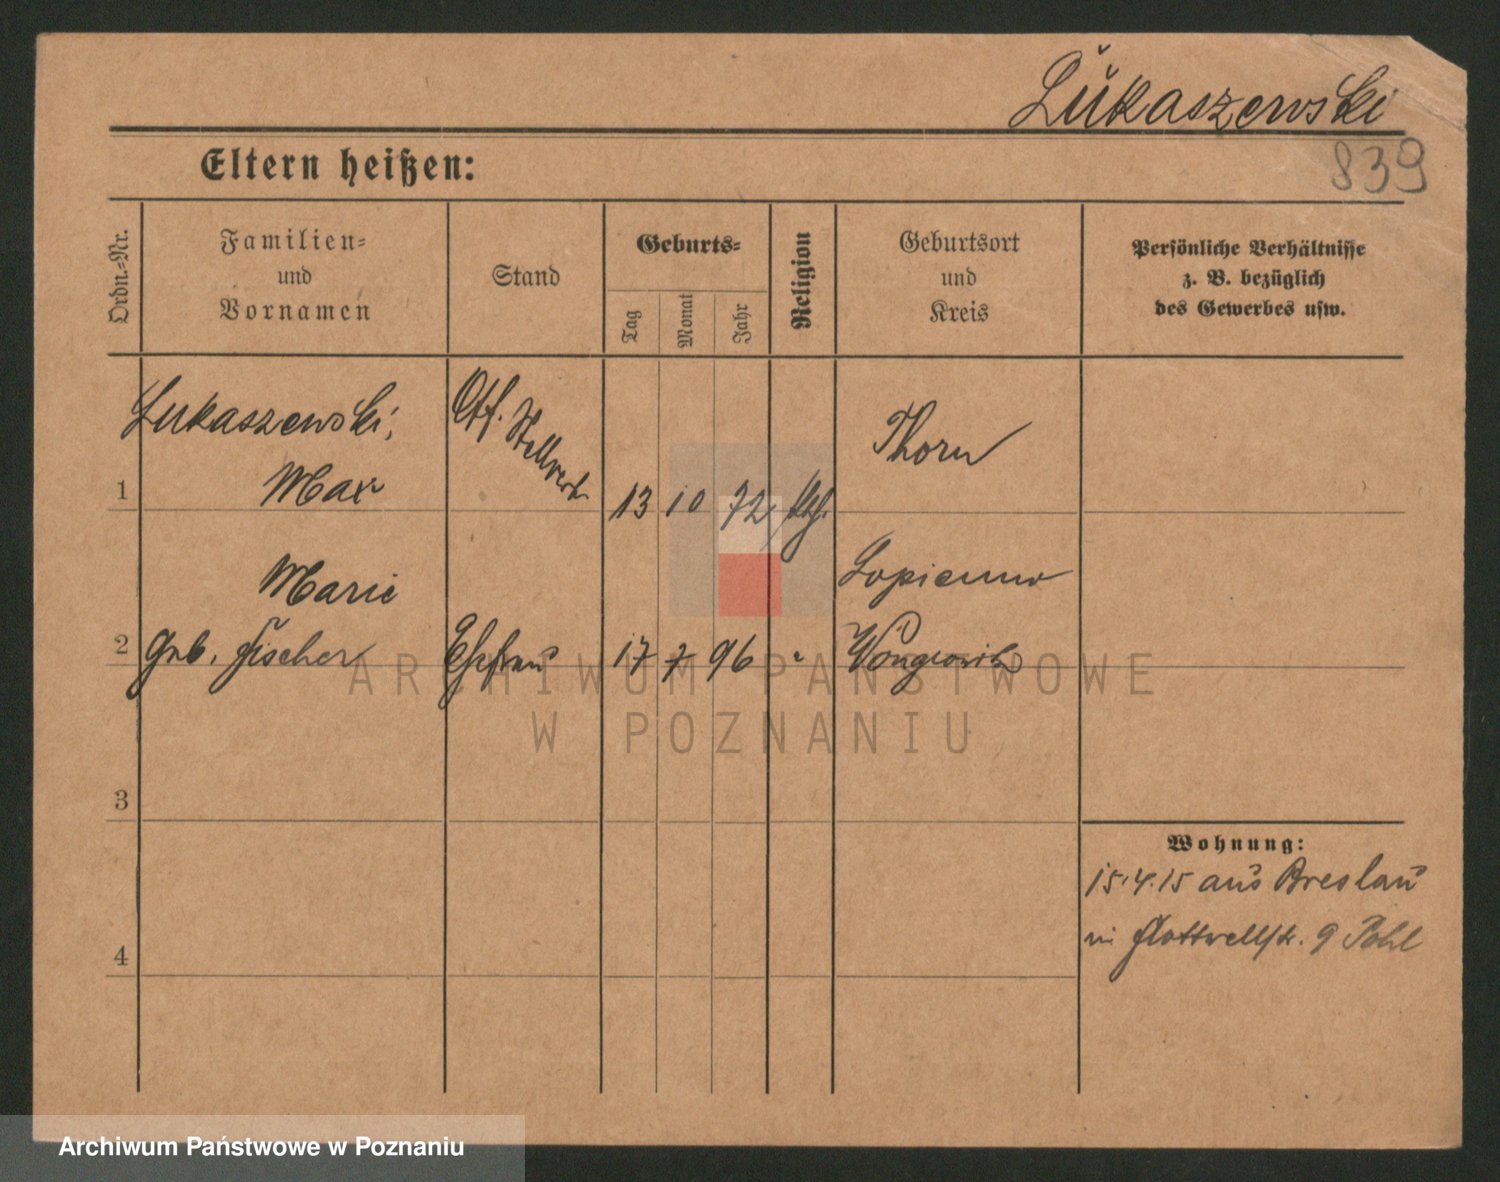 Lukaszewski
839
Eltern heißen:
Ordn.-Nr.
Familien-
und
Vornamen
Stand
Geburts-
Tag
Monat
Jahr
Religion
Geburtsort
und
Kreis
Persönliche Verhältnisse
z. B. bezüglich
des Gewerbes usw.
1
Lukaszewski,
Max
Off. Stellvertr.
13
10
72
kth.
Thorn
2
Marie
geb. Fischer
Ehefrau
17
7
96
"
Lopienno
Wongrowitz
3
4
Wohnung:
15.4.15 aus Breslau
in Flottwellstr. 9 Pohl
ARCHIWUM PAŃSTWOWE
W POZNANIU
Archiwum Państwowe w Poznaniu